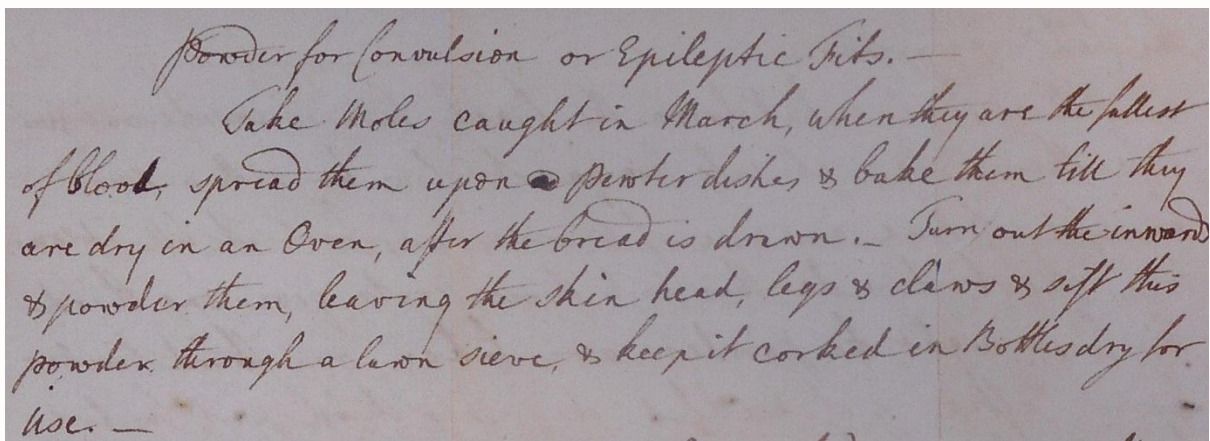 Powder for Convulsion or Epileptic Fits. —
Take Moles caught in March, when they are the fullest
of blood, spread them upon pewter dishes & bake them till they
are dry in an Oven, after the bread is drawn. — Turn out the inwards
& powder them, leaving the skin head, legs & claws & sift this
powder through a lawn sieve, & keep it corked in Bottles dry for
use. —